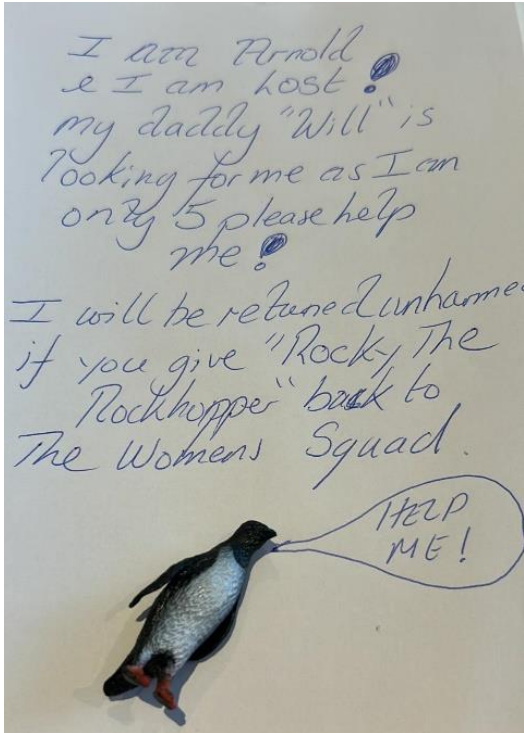 I am Arnold
& I am Lost!
my daddy "Will" is
looking for me as I am
only 5 please help
me!
I will be retuned unharmed
if you give "Rocky The
Rockhopper" back to
The Womens Squad.
HELP
ME!